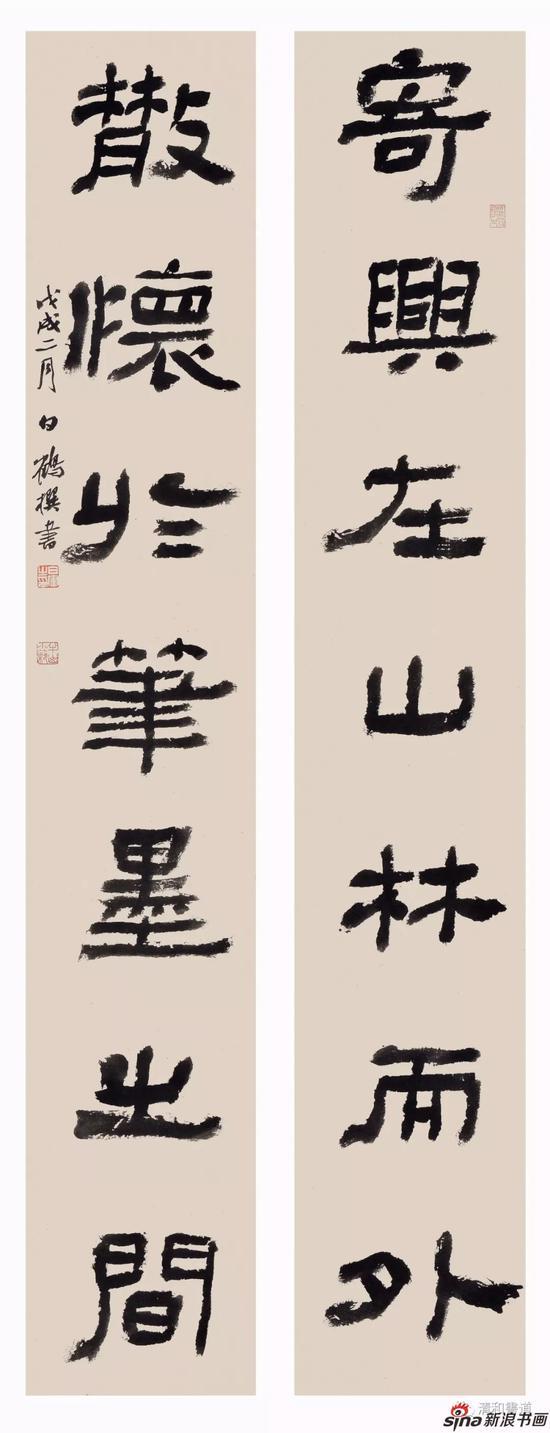 寄興在山林而外
散懷於筆墨之間
戊戌二月白鶴撰書
清和書道
sina新浪书画